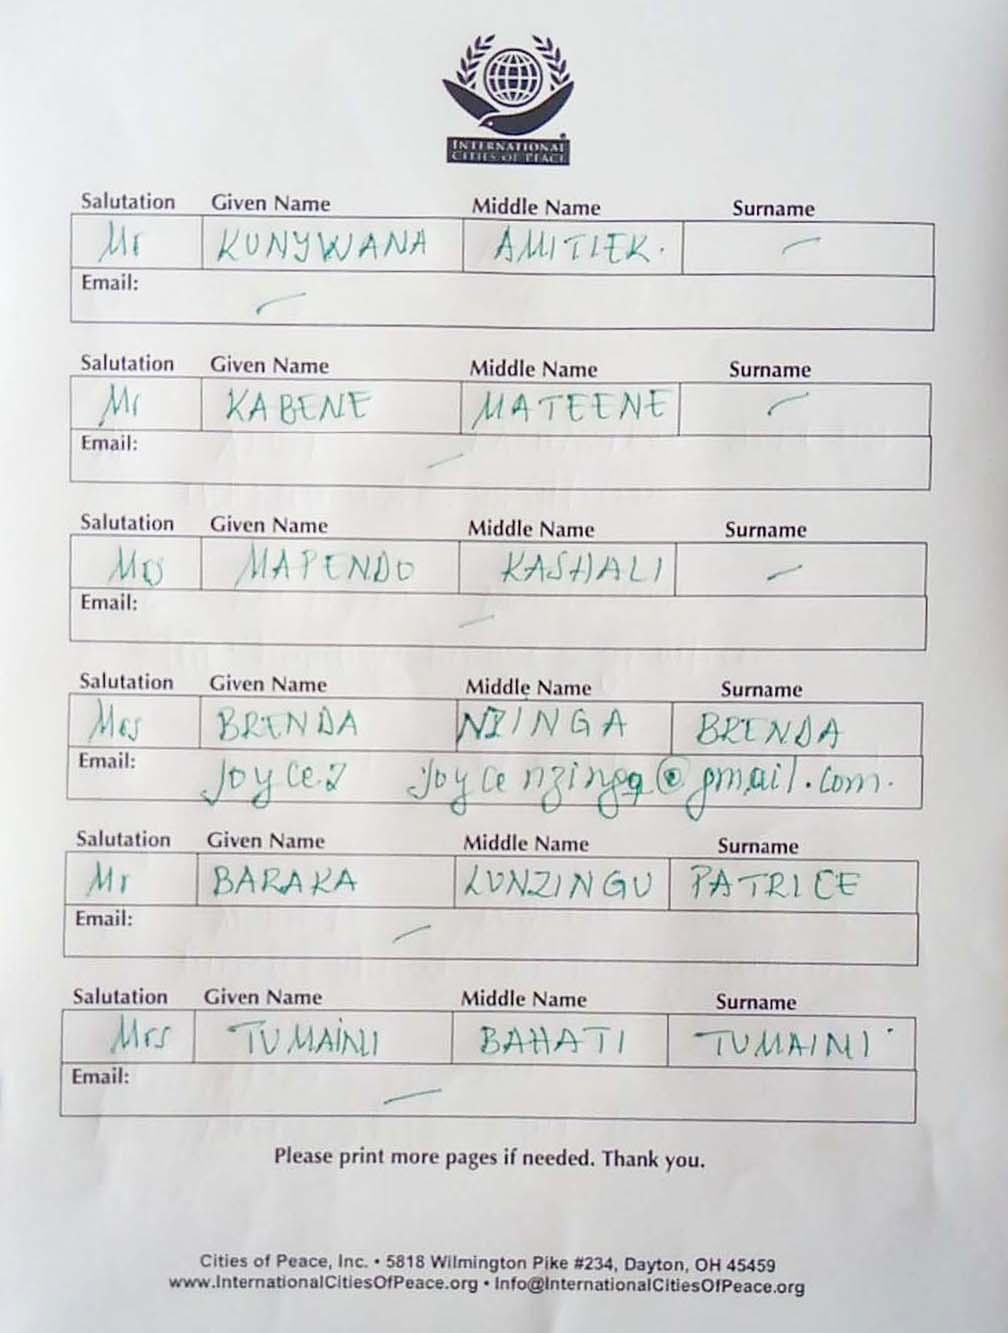 INTERNATIONAL
CITIES OF PEACE
Salutation Given Name Middle Name Surname
Mr KUNYWANA AMITIEK. —
Email: —
Salutation Given Name Middle Name Surname
Mr KABENE MATEENE —
Email: —
Salutation Given Name Middle Name Surname
Mrs MAPENDO KASHALI —
Email: —
Salutation Given Name Middle Name Surname
Mrs BRENDA NZINGA BRENDA
Email: Joyce.2 Joyce nzinga@gmail.com.
Salutation Given Name Middle Name Surname
Mr BARAKA LUNZINGU PATRICE
Email: —
Salutation Given Name Middle Name Surname
Mrs TUMAINI BAHATI TUMAINI
Email: —
Please print more pages if needed. Thank you.
Cities of Peace, Inc. • 5818 Wilmington Pike #234, Dayton, OH 45459
www.InternationalCitiesOfPeace.org • Info@InternationalCitiesOfPeace.org